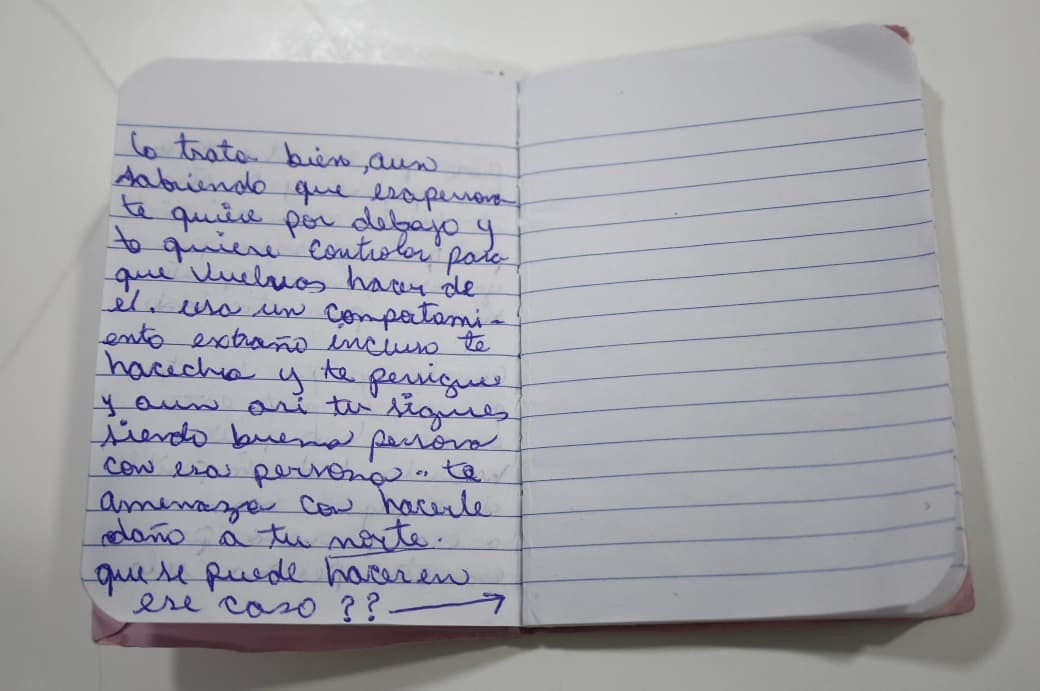 lo trata bien, aun
sabiendo que esapersona
te quiere por debajo y
te quiere controlar para
que vuelvas hacer de
el. usa un comportami-
ento extraño incluso te
hacecha y te persigue
y aun asi tu sigues
siendo buena persona
con esa persona.. te
amenaza con hacerle
daño a tu norte.
que se puede hacer en
ese caso ??